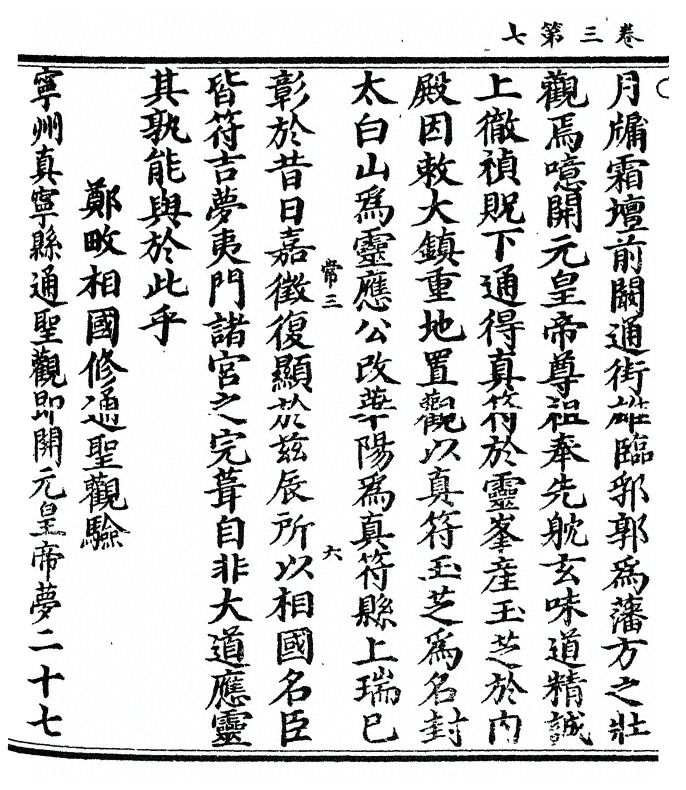 卷三第七
月牖霜壇前闞通街雄臨郛郭爲藩方之壯
觀焉噫開元皇帝尊祖奉先躭玄味道精誠
上徹禎貺下通得真符於靈峯産玉芝於内
殿因敕大鎮重地置觀以真符玉芝爲名封
太白山爲靈應公改華陽爲真符縣上瑞已
常三
六
彰於昔日嘉徵復顯於兹辰所以相國名臣
皆符吉夢夷門諸宮之完葺自非大道應靈
其孰能與於此乎
鄭畋相國修通聖觀驗
寧州真寧縣通聖觀即開元皇帝夢二十七